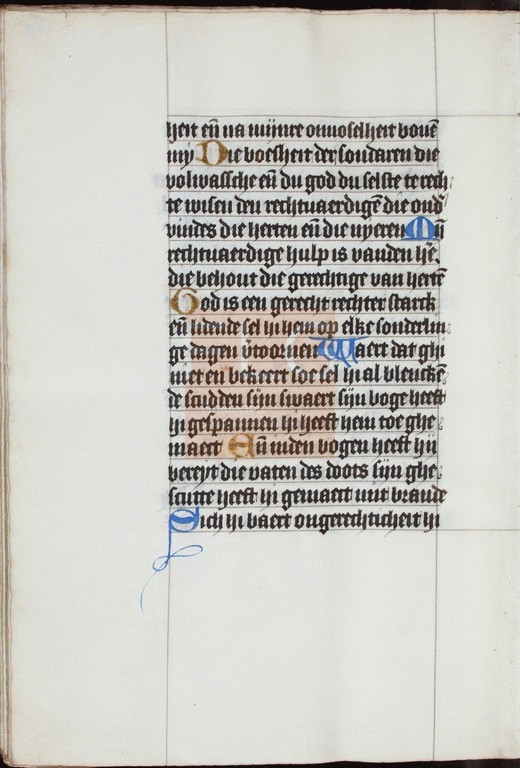 heit en̄ na mijnre onnoselheit bouē
my Die boesheit der sondaren die
volwassche en̄ du god du selste te rech
te wisen den rechtuaerdigē die ond̕
vindes die herten en̄ die nyeren Mijn
rechtuaerdige hulp is vanden he̕.
die behout die gerechtige van hertē
God is een gerecht rechter starck
en̄ lidende sel hi hem op elke sonderlin
ge dagen vtoornen Waert dat ghi
niet en bekeert soe sel hi al blenckē
de scudden sijn swaert sijn boge heeft
hi gespannen hi heeft hem toe ghe
maect En̄ inden bogen heeft hij
bereyt die vaten des doots sijn ghe
scutte heeft hi gemaect mit brande
Sich hi baert ongerechticheit hi